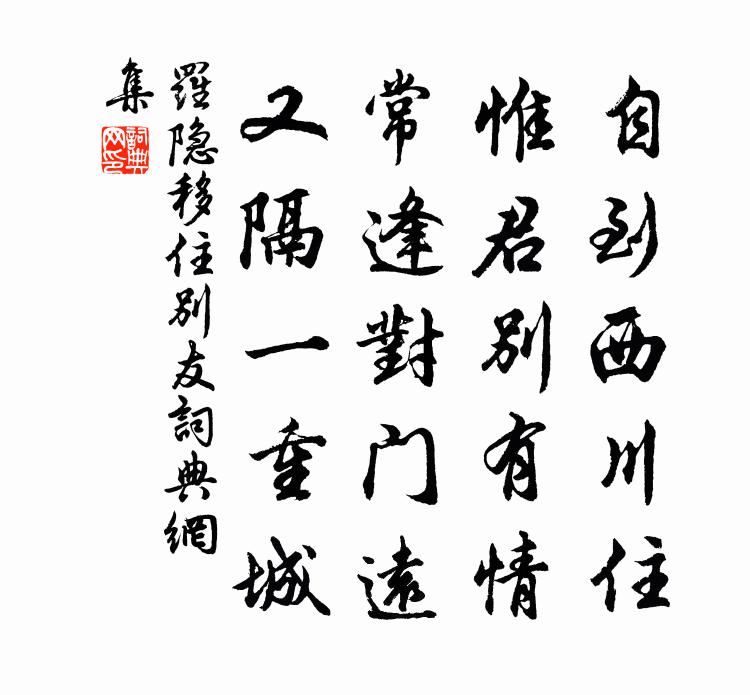 自到西川住
惟君别有情
常逢對门遠
又隔一重城
羅隐移住别友詞典網
集
詞典网印